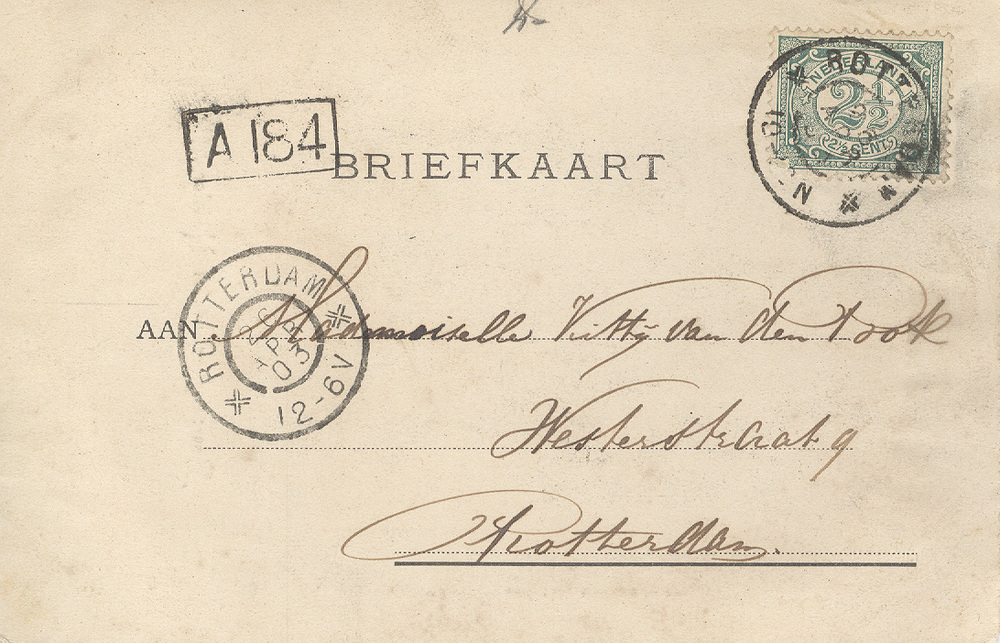 A 184
BRIEFKAART
NEDERLAND
2½
2½ CENT
ROTTERDAM
ROTTERDAM
APR
03
12-6V
AAN Mademoiselle Kitty van den
Westerstraat 9
Rotterdam.